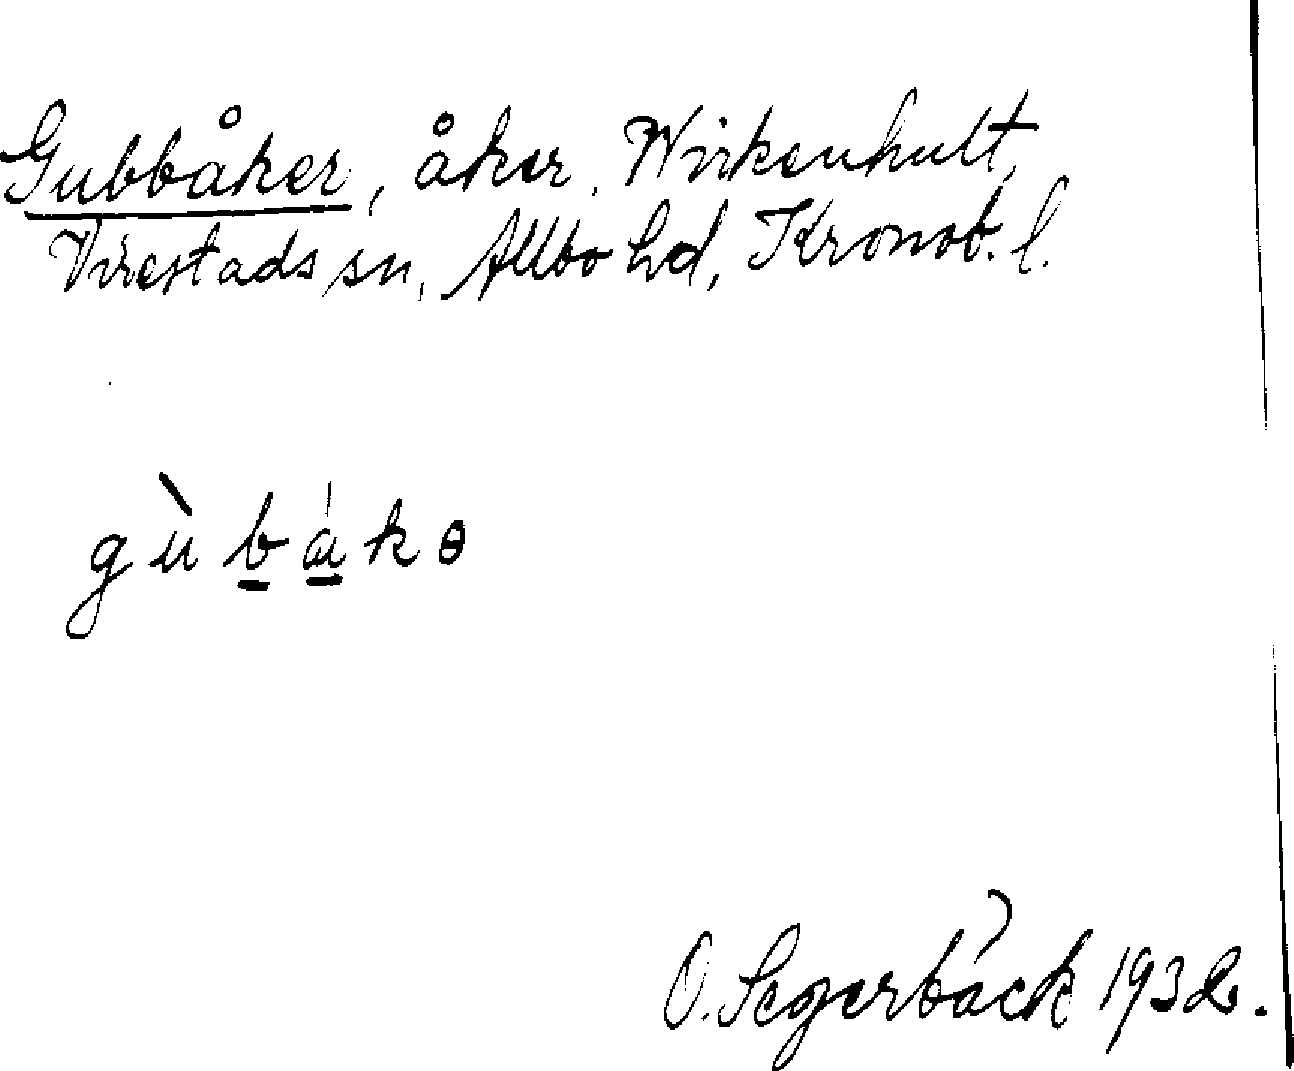 Gubbåker, åker, Wirkenhult,
Virestads sn, Allbo hd, Kronob. l.
gùbákɵ
O. Segerbäck 1932.